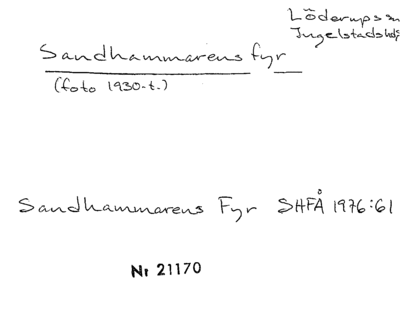 Löderups sn
Ingelstads hd
Sandhammarens fyr
(foto 1930-t.)
Sandhammarens Fyr SHFÅ 1976:61
Nr 21170